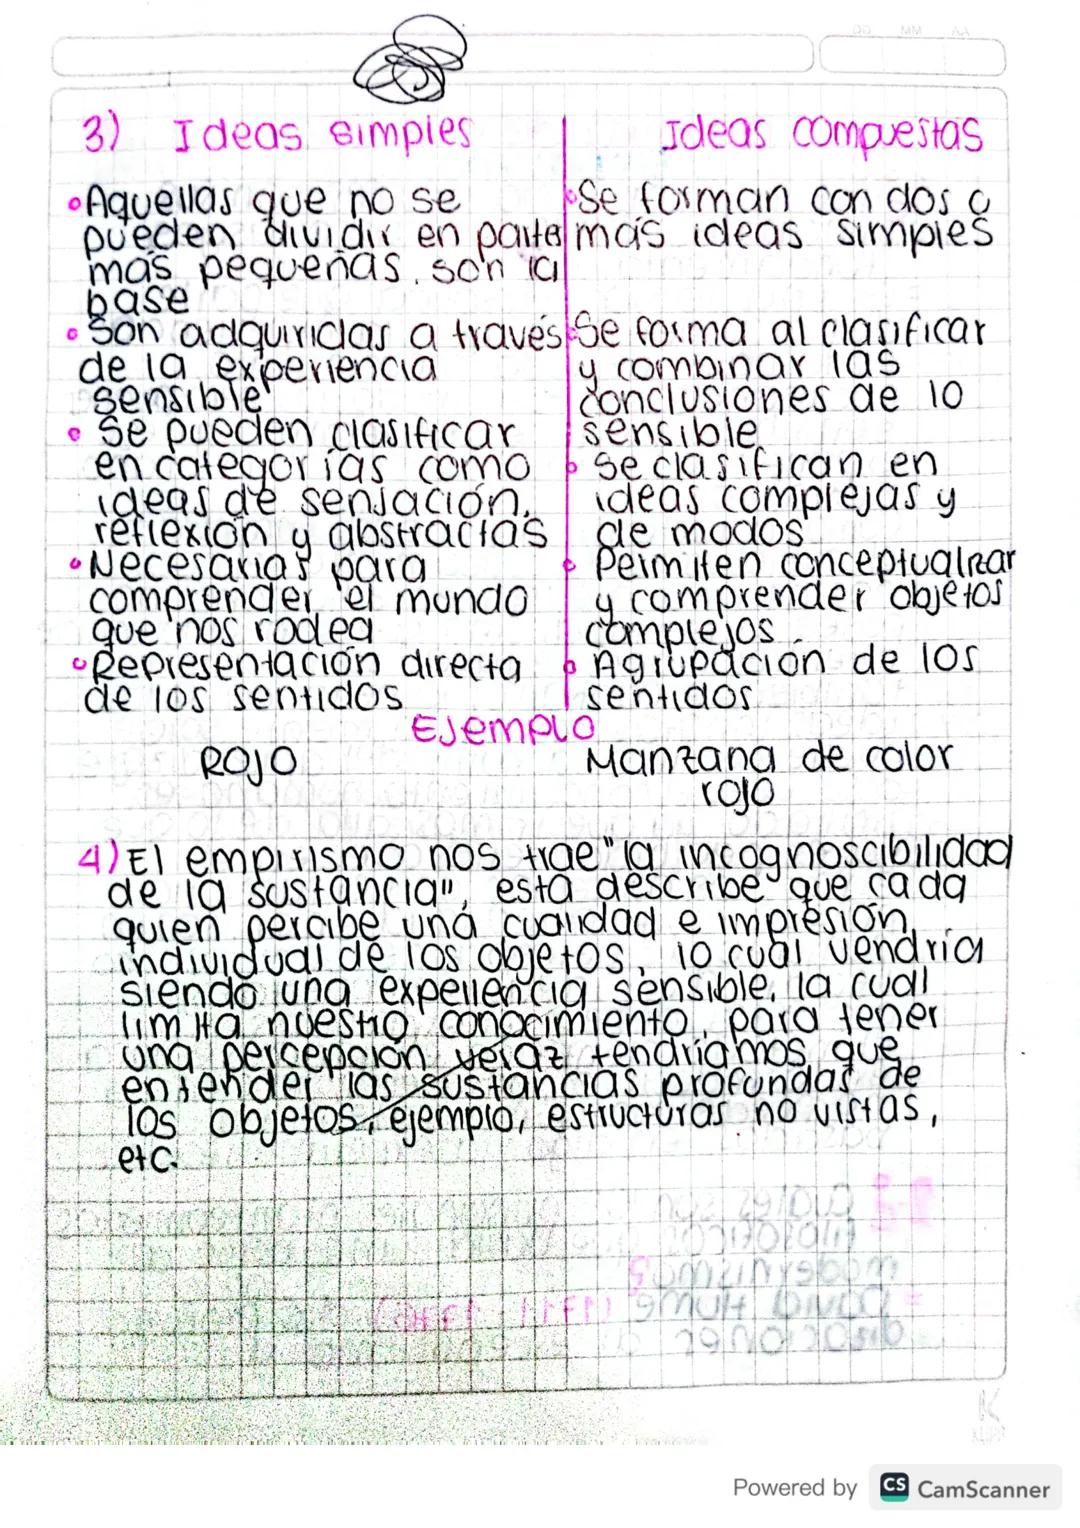 3) Ideas simples
Ideas compuestas
• Aquellas que no se
pueden dividir en partes
más pequeñas, son la
base
• Son adquiridas a través
de la experiencia
sensible
• Se pueden clasificar
en categorías como
ideas de sensación,
reflexión y abstractas
• Necesarias para
comprender el mundo
que nos rodea
• Representación directa
de los sentidos
• Se forman con dos o
más ideas simples
• Se forma al clasificar
y combinar las
conclusiones de lo
sensible
• Se clasifican en
ideas complejas y
de modos
• Permiten conceptualizar
y comprender objetos
complejos
• Agrupación de los
sentidos
Ejemplo
Rojo
Manzana de color
rojo
4) El empirismo nos trae "la incognoscibilidad
de la sustancia", esta describe que cada
quien percibe una cualidad e impresión
individual de los objetos, lo cual vendría
siendo una experiencia sensible, la cual
limita nuestro conocimiento, para tener
una percepción veraz tendríamos que
entender las sustancias profundas de
los objetos, ejemplo, estructuras no vistas,
etc.
Powered by CS CamScanner